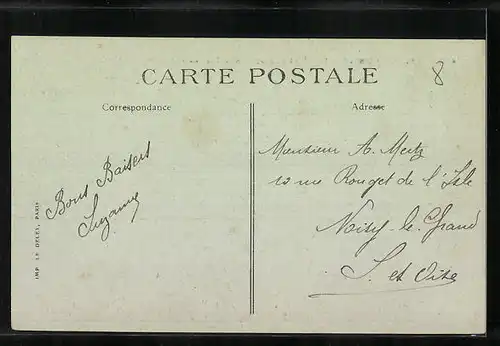 CARTE POSTALE
8
Correspondance
Adresse
Bons Baisers
Suzanne
Monsieur A. Metz
12 rue Rouget de l'Isle
Noisy-le-Grand
S. et Oise
IMP. LE DELEY, PARIS